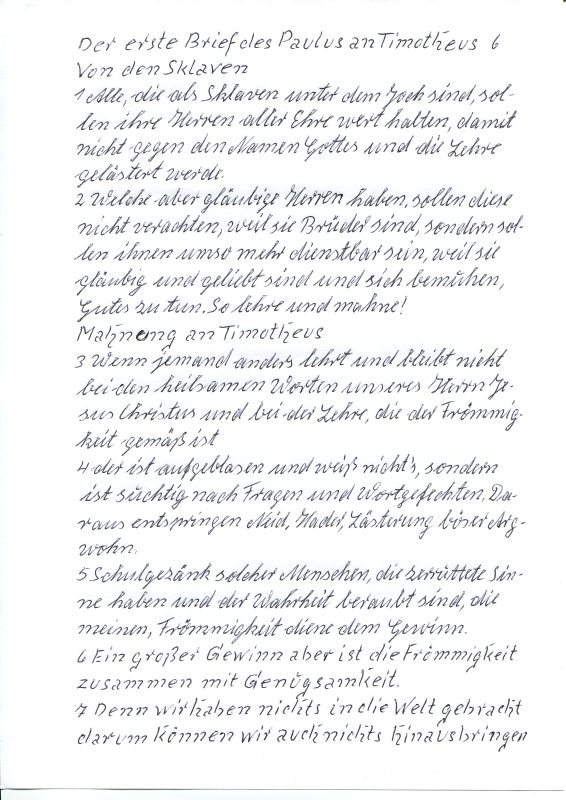 Der erste Brief des Paulus an Timotheus 6
Von den Sklaven
1 Alle, die als Sklaven unter dem Joch sind, sol-
len ihre Herren aller Ehre wert halten, damit
nicht gegen den Namen Gottes und die Lehre
gelästert werde.
2 Welche aber gläubige Herren haben, sollen diese
nicht verachten, weil sie Brüder sind, sondern sol-
len ihnen umso mehr dienstbar sein, weil sie
gläubig und geliebt sind und sich bemühen,
Gutes zu tun. So lehre und mahne!
Mahnung an Timotheus
3 Wenn jemand anders lehrt und bleibt nicht
bei den heilsamen Worten unseres Herrn Je-
sus Christus und bei der Lehre, die der Frömmig-
keit gemäß ist
4 der ist aufgeblasen und weiß nichts, sondern
ist süchtig nach Fragen und Wortgefechten. Da-
raus entspringen Neid, Hader, Lästerung böser Arg-
wohn.
5 Schulgezänk solcher Menschen, die zerrüttete Sin-
ne haben und der Wahrheit beraubt sind, die
meinen, Frömmigkeit diene dem Gewinn.
6 Ein großer Gewinn aber ist die Frömmigkeit
zusammen mit Genügsamkeit.
7 Denn wir haben nichts in die Welt gebracht
darum können wir auch nichts hinausbringen